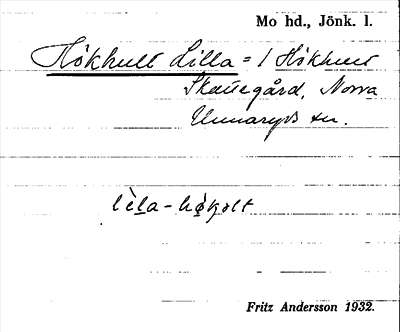 Mo hd., Jönk. l.
Hökhult Lilla = 1 Hökhult
Skattegård, Norra
Unnaryds sn.
lèla - hökolt
Fritz Andersson 1932.